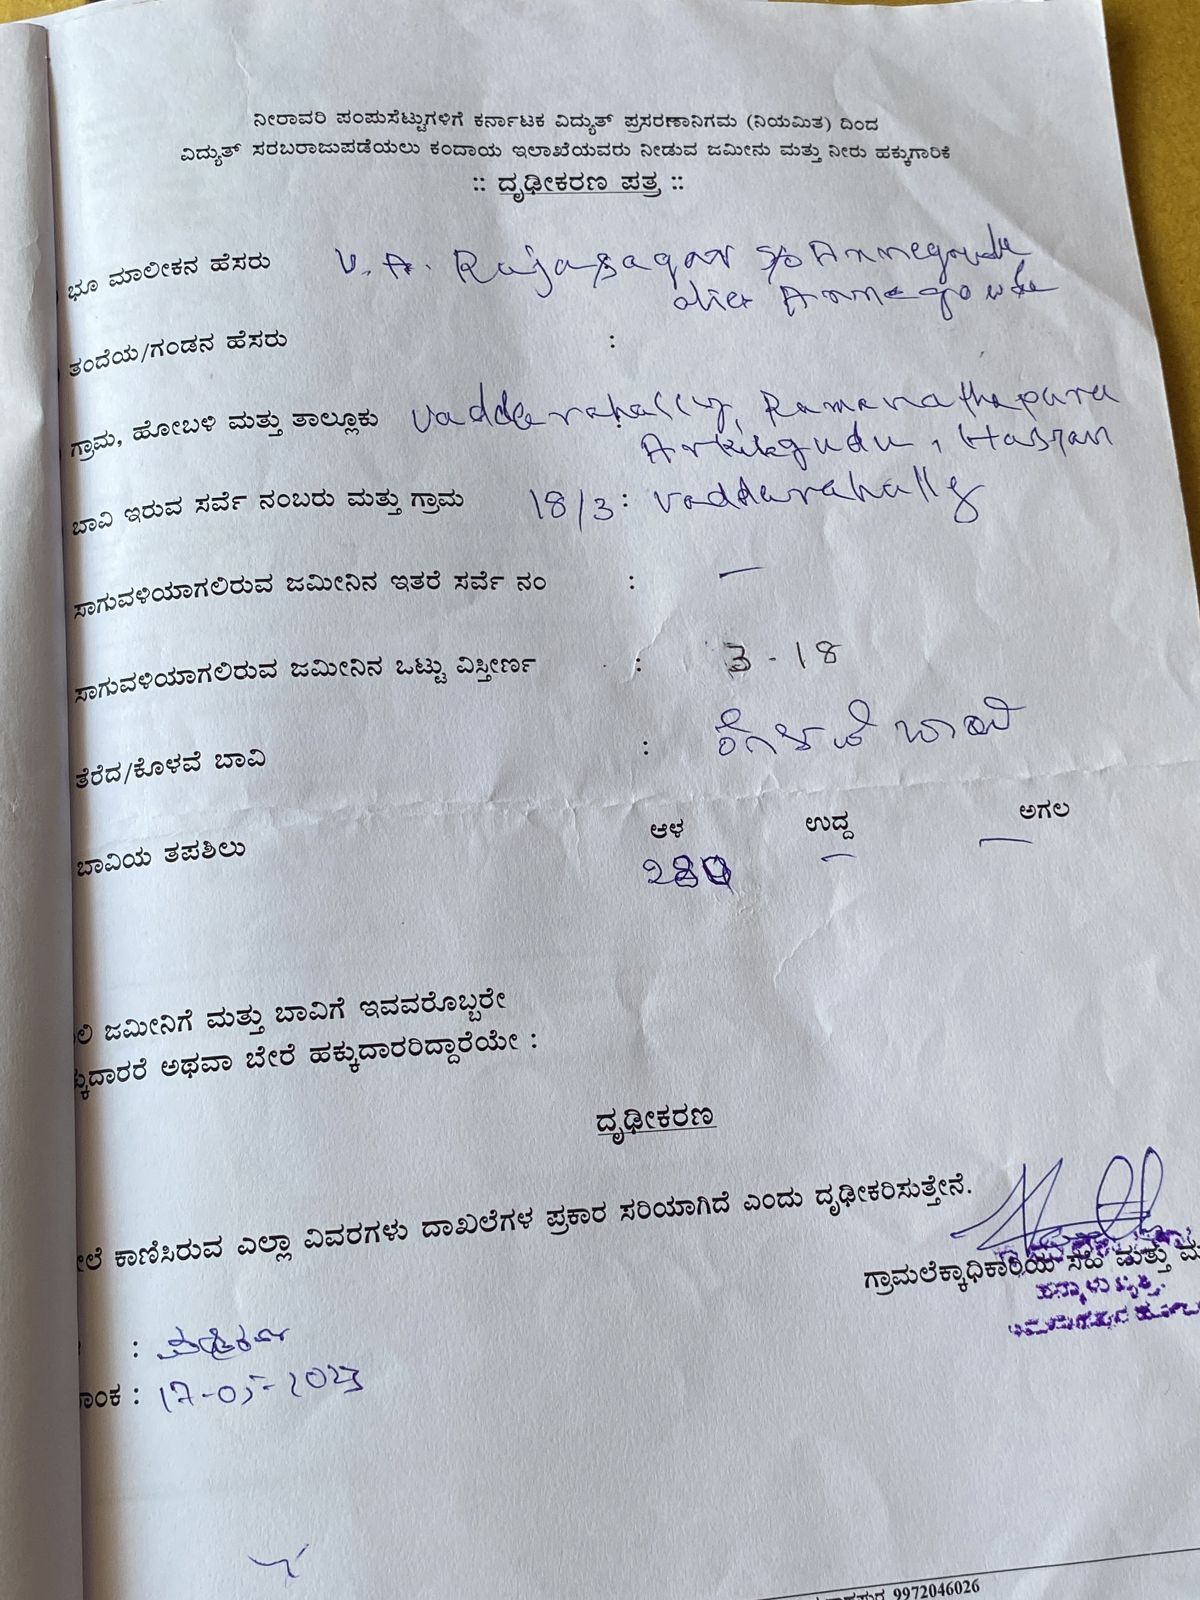 ನೀರಾವರಿ ಪಂಪುಸೆಟ್ಟುಗಳಿಗೆ ಕರ್ನಾಟಕ ವಿದ್ಯುತ್ ಪ್ರಸರಣಾನಿಗಮ (ನಿಯಮಿತ) ದಿಂದ
ವಿದ್ಯುತ್ ಸರಬರಾಜುಪಡೆಯಲು ಕಂದಾಯ ಇಲಾಖೆಯವರು ನೀಡುವ ಜಮೀನು ಮತ್ತು ನೀರು ಹಕ್ಕುಗಾರಿಕೆ
:: ದೃಢೀಕರಣ ಪತ್ರ ::
ಭೂ ಮಾಲೀಕನ ಹೆಸರು V. A. Rajasagar S/o Annegowda
Annegowda
ತಂದೆಯ/ಗಂಡನ ಹೆಸರು :
ಗ್ರಾಮ, ಹೋಬಳಿ ಮತ್ತು ತಾಲ್ಲೂಕು Vadderahally, Ramanathapura
Arkalgudu, Hassan
ಬಾವಿ ಇರುವ ಸರ್ವೆ ನಂಬರು ಮತ್ತು ಗ್ರಾಮ 18/3 : Vadderahally
ಸಾಗುವಳಿಯಾಗಲಿರುವ ಜಮೀನಿನ ಇತರೆ ಸರ್ವೆ ನಂ : —
ಸಾಗುವಳಿಯಾಗಲಿರುವ ಜಮೀನಿನ ಒಟ್ಟು ವಿಸ್ತೀರ್ಣ : 3 - 18
ತೆರೆದ/ಕೊಳವೆ ಬಾವಿ : ಕೊಳವೆ ಬಾವಿ
ಬಾವಿಯ ತಪಶಿಲು ಆಳ ಉದ್ದ ಅಗಲ
280 — —
ಜಮೀನಿಗೆ ಮತ್ತು ಬಾವಿಗೆ ಇವವರೊಬ್ಬರೇ
ಕ್ಕುದಾರರೆ ಅಥವಾ ಬೇರೆ ಹಕ್ಕುದಾರರಿದ್ದಾರೆಯೇ :
ದೃಢೀಕರಣ
ಲೆ ಕಾಣಿಸಿರುವ ಎಲ್ಲಾ ವಿವರಗಳು ದಾಖಲೆಗಳ ಪ್ರಕಾರ ಸರಿಯಾಗಿದೆ ಎಂದು ದೃಢೀಕರಿಸುತ್ತೇನೆ.
ಗ್ರಾಮಲೆಕ್ಕಾಧಿಕಾರಿಯ ಸಹಿ ಮತ್ತು
:
ಾಂಕ : 17-05-2023
9972046026